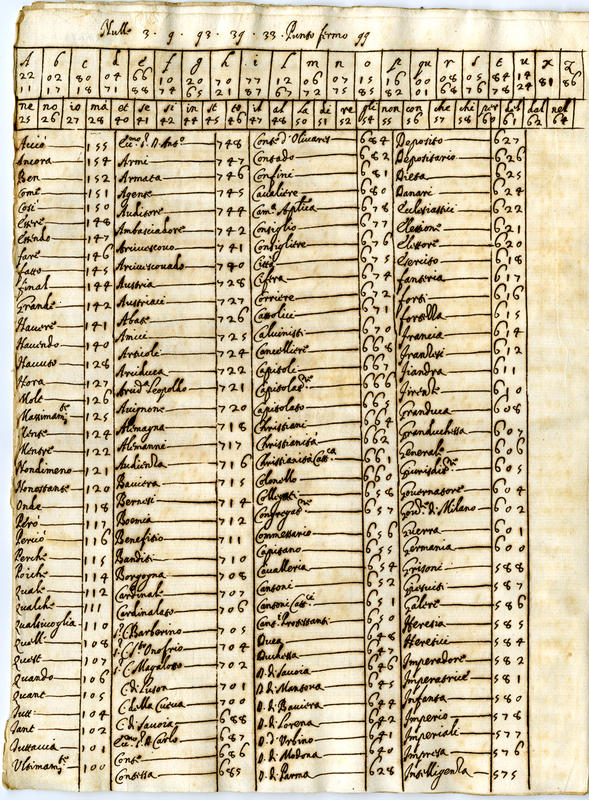 Nulle 3 . 9 . 93 . 39 . 33 . Punto fermo 99
A b c d e f g h i l m n o p qu r s t u x Z
22 02 80 04 66 10 20 70 77 12 06 07 15 16 00 08 05 84 14 81 86
88 74 65 21 87 85 82 76 78 24
ne no io ma et se si in st to il al la di re gli non con che chi per del dal nel
25 26 27 28 40 41 42 44 45 46 47 48 50 51 52 54 55 56 57 58 60 61 62 64
Acciò 155
Ancora 154
Ben 152
Come 151
Così 150
Essere 148
Essendo 147
fare 146
fatto 145
final 144
Grande 142
Havere 141
Havendo 140
Havuto 128
Hora 127
Molt 126
Massimam.te 125
Mente 124
Mentre 122
Nondimeno 121
Nonostante 120
Onde 118
Però 117
Perciò 116
Perche 115
Poiche 114
Qual 112
Qualche 111
Qualsivoglia 110
Quell 108
Quest 107
Quando 106
Quant 105
Tutt 104
Tant 102
Tuttavia 101
Ultimam.te 100
S.r D. Ant.o 748
Armi 747
Armata 746
Agente 745
Auditore 744
Ambasciadore 742
Arcivescovo 741
Arcivescovado 740
Austria 728
Austriaci 727
Abate 726
Amici 725
Articoli 724
Arciduca 722
Arcid.a Leopoldo 721
Avignone 720
Alemagna 718
Alemanni 717
Audienza 716
Baviera 715
Bernesi 714
Boemia 712
Benefitio 711
Banditi 710
Borgogna 708
Cardinal 707
Cardinalato 706
S.r C. Barberino 705
S.r C. S.to Onofrio 704
S.r C. Magalotto 702
C. di Luson 701
C. della Cueva 700
C. di Savoia 688
S.r D. Carlo 687
Conte 686
Contessa 685
Conte d'Olivares 684
Contado 682
Confini 681
Cavaliere 680
Cam.a Ap.lica 678
Consiglio 677
Consigliere 676
Città 675
Cifera 674
Corriere 672
Cattolici 671
Calvinisti 670
Cancelliere 668
Capitoli 667
Capitolat.ne 666
Capitolato 665
Christiani 664
Christianità 662
Christianità Catt.ca 661
Colonello 660
Collegati 658
Congregat.ne 657
Commessario 656
Capitano 655
Cavalleria 654
Cantoni 652
Cantoni Catt.ci 651
Cant.i Protestanti 650
Duca 648
Duchessa 647
D. di Savoia 646
D. di Mantova 645
D. di Baviera 644
D. di Lorena 642
D. d'Urbino 641
D. di Modona 640
D. di Parma 628
Deposito 627
Depositario 626
Dieta 625
Danari 624
Ecclesiastici 622
Elettione 621
Elettore 620
Esercito 618
fanteria 617
forti 616
fortezza 615
francia 614
francesi 612
fiandra 611
firenze 610
Granduca 608
Granduchessa 607
Generale 606
Giurisdit.ne 605
Governatore 604
Gov.re di Milano 602
Guerra 601
Germania 600
Grisoni 588
Giesuiti 587
Galere 586
Heresia 585
Heretici 584
Imperadore 582
Imperatrice 581
Infanta 580
Imperio 578
Imperiali 577
Impresa 576
Intelligenza 575